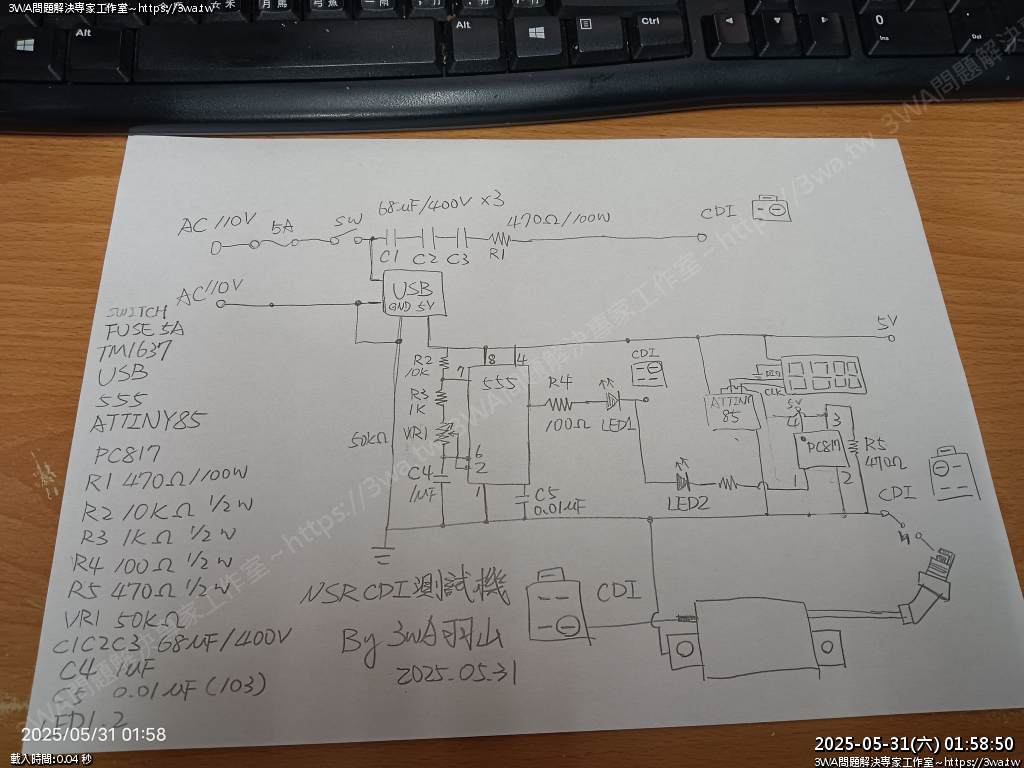 3WA問題解決專家工作室~https://3wa.tw
Alt
Alt
Ctrl
0
Ins
Del
AC 110V
5A
SW
68uF/400V ×3
470Ω/100W
CDI
C1
C2
C3
R1
AC110V
USB
GND 5V
5V
SWITCH
FUSE 5A
TM1637
USB
555
ATTINY85
PC817
R1 470Ω/100W
R2 10KΩ 1/2W
R3 1KΩ 1/2W
R4 100Ω 1/2W
R5 470Ω 1/2W
VR1 50KΩ
C1C2C3 68uF/400V
C4 1uF
C5 0.01uF (103)
LED1.2
R2
10K
7
8
4
555
R3
1K
50KΩ
VR1
6
2
C4
1uF
1
C5
0.01uF
R4
100Ω
LED1
CDI
LED2
ATTINY
85
DIO
CLK
5V
4
3
PC817
1
2
R5
470Ω
CDI
NSR CDI測試機
By 3WA羽山
2025.05.31
CDI
3WA問題解決專家工作室~https://3wa.tw
2025/05/31 01:58
載入時間:0.04 秒
2025-05-31(六) 01:58:50
3WA問題解決專家工作室~https://3wa.tw